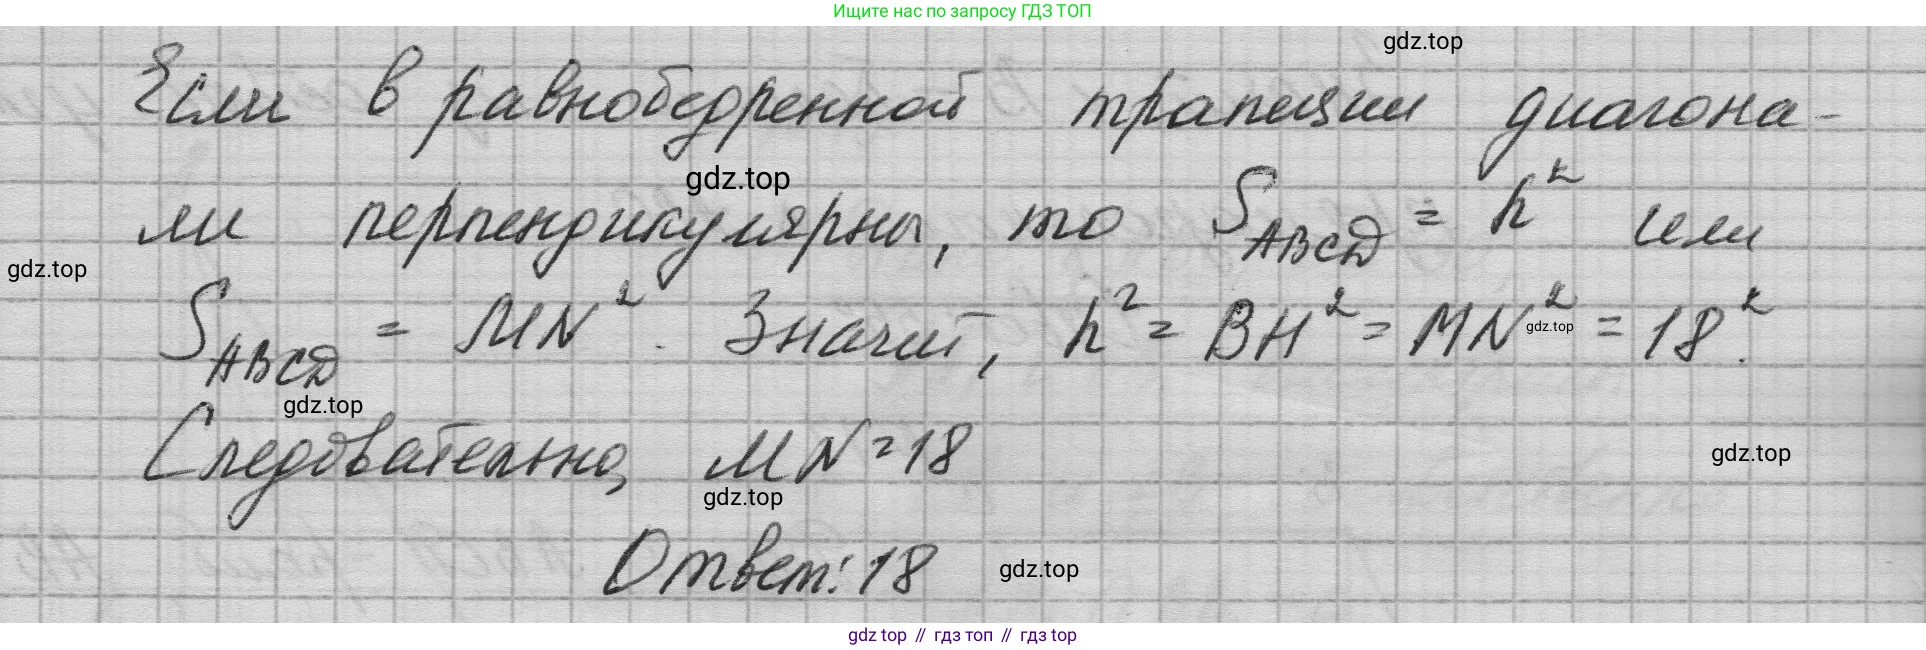 Ищите нас по запросу ГДЗ ТОП
gdz.top
Если в равнобедренной трапеции диагона-
gdz.top
ли перпендикулярны, то S_ABCD = h² или
gdz.top
S_ABCD = MN². Значит, h² = BH² = MN² = 18².
gdz.top
gdz.top
Следовательно, MN = 18
gdz.top
gdz.top
Ответ: 18
gdz.top
gdz top // гдз топ // гдз top